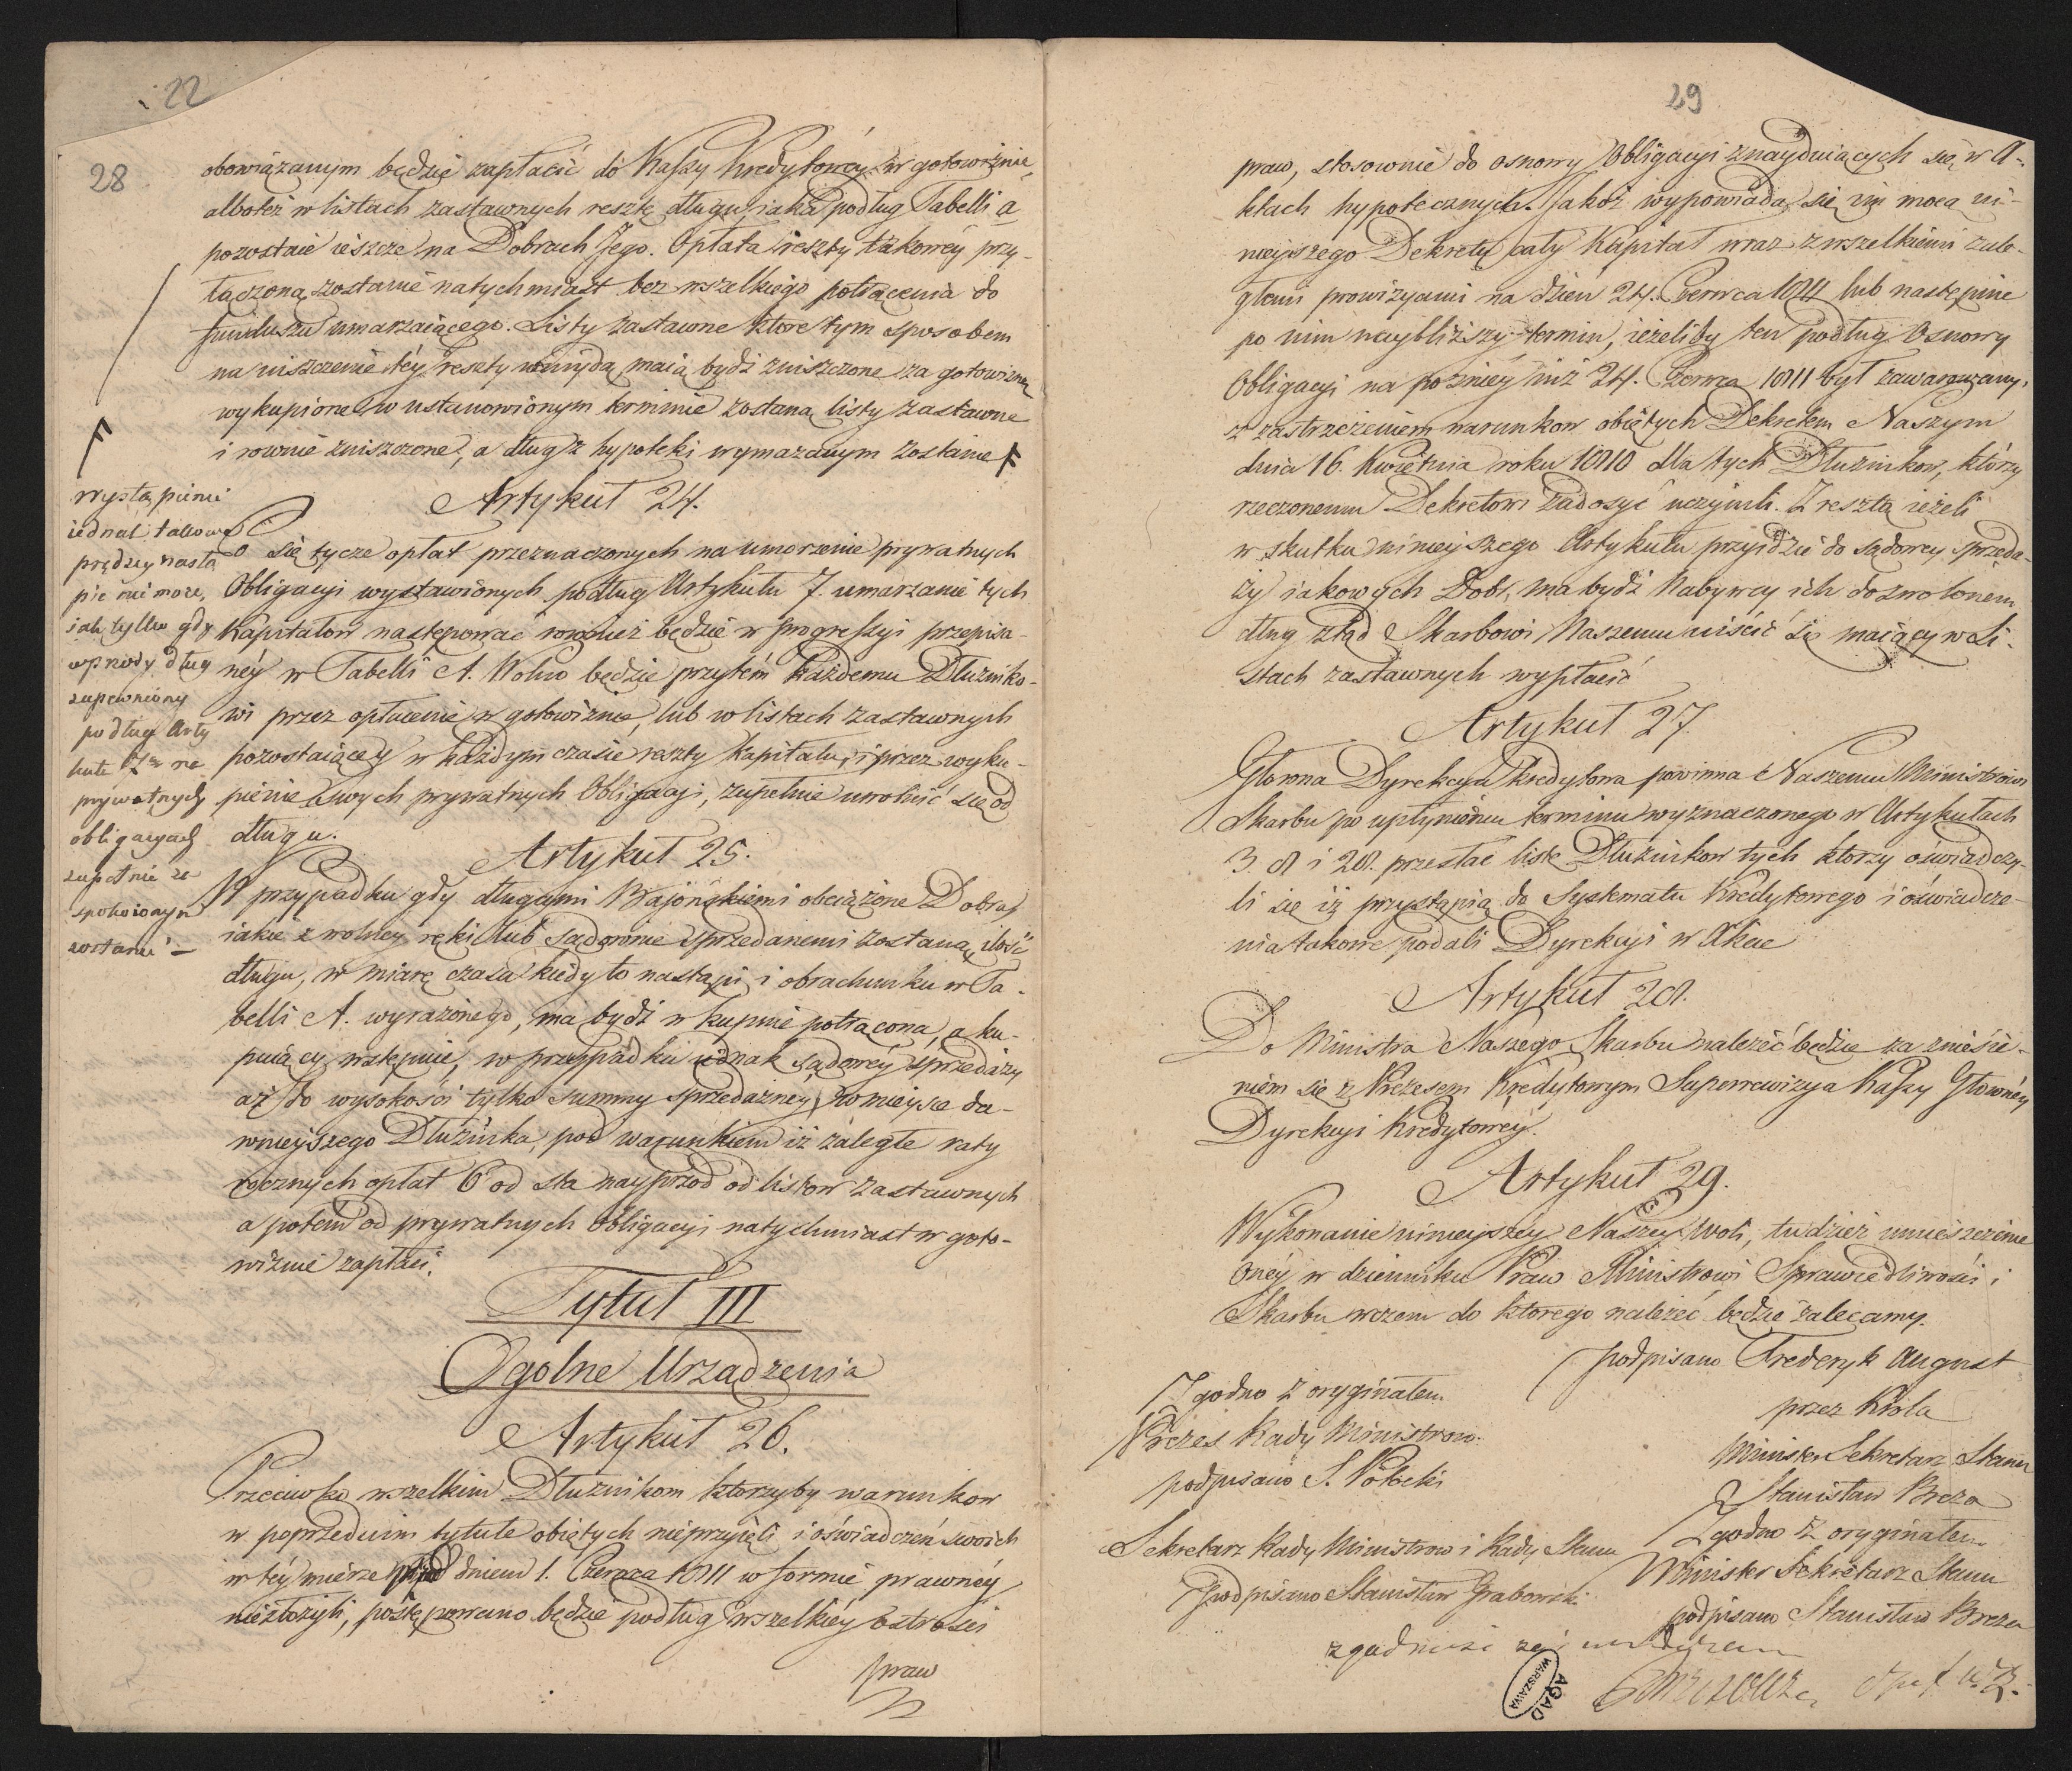 22
28
obowiązanym będzie zapłacić do Kassy Kredytowey w gotowiznie,
albo też w listach zastawnych resztę długu, iaka podług Tabelli A
pozostaie ieszcze na Dobrach Jego. Opłata reszty takowéy przy-
łączoną zostanie natychmiast bez wszelkiego potrącenia do
funduszu umarzaiącego. Listy zastawne które tym sposobem
na uiszczenie téy reszty wnijdą maią bydź zniszczone za gotowiznę
wykupione w ustanowionym terminie zostaną listy zastawne
i rownie zniszczone, a dług z hypoteki wymazanym zostanie
wystąpienie
iednak takowe
prędzey nastą
pić nie może,
iak tylko gdy
wprzódy dług
zapewniony
podług Arty
kułu 7go na
prywatnych
obligacyach
zupełnie za
spokoionym
zostanie –
Artykuł 24.
Co się tycze opłat przeznaczonych na umorzenie prywatnych
Obligacyi wystawionych podług Artykułu 7. umarzanie tych
Kapitałow następować rownież będzie w progressyi przepisa-
néy w Tabelli A. Wolno będzie przytém każdemu Dłużniko-
wi przez opłacenie w gotowiznie, lub w listach zastawnych
pozostaiącey w każdym czasie reszty Kapitału, i przez wyku-
pienie swych prywatnych Obligacyi, zupełnie uwolnić się od
długu.
Artykuł 25.
W przypadku gdy długami Bajońskiemi obciążone Dobra,
iakie z wolney ręki lub sądownie sprzedanemi zostaną, ilość
długu, w miarę czasu kiedy to nastąpi, i obrachunku w Ta-
belli A. wyrażonego, ma bydź w kupnie potrącona, a ku-
puiący wstępuie, w przypadku iednak sądowéy sprzedaży
aż do wysokości tylko summy sprzedażney, w mieysce da-
wnieyszego Dłużnika, pod warunkiem iż zaległe raty
rocznych opłat 6 od sta nayprzod od listow zastawnych
a potem od prywatnych obligacyi natychmiast w goto-
wiznie zapłaci.
Tytuł III
Ogolne Urządzenia
Artykuł 26.
Przeciwko wszelkim Dłużnikom ktorzyby warunkow
w poprzednim tytule obiętych nieprzyięli i oświadczeń swoich
w téy mierze przed dniem 1. Czerwca 1811 w formie prawnéy
niezłożyli, postępowano będzie podług wszelkiéy ostrości
praw
29
praw, stosownie do osnowy Obligacyi znayduiących się w A-
ktach hypotecznych. Jakoż wypowiada się im mocą ni-
nieyszego Dekretu cały Kapitał wraz z wszelkiemi zale-
głemi prowizyami na dzien 24. Czerwca 1811 lub następnie
po nim naybliższy termin, ieżeliby ten podług Osnowy
Obligacyi na poźniey niż 24. Czerwca 1811 był zawarowany,
z zastrzeżeniem warunkow obiętych Dekretem Naszym
dnia 16. Kwietnia roku 1810 dla tych Dłużnikow, którzy
rzeczonemu Dekretowi zadosyć uczynili. Z resztą ieżeli
w skutku ninieyszego Artykułu przyidzie do sądowey sprzeda-
ży iakowych Dobr, ma bydź Nabywcy ich dozwolonem
dług ztąd Skarbowi Naszemu uiścić się maiący w Li-
stach zastawnych wypłacić
Artykuł 27.
Głowna Dyrekcya Kredytowa powinna Naszemu Ministrowi
Skarbu po upłynieniu terminu wyznaczonego w Artykułach
3. 8 i 28. przesłać listę Dłużnikow tych ktorzy oświadczy-
li się iż przystąpią do Systematu Kredytowego i oświadcze-
nia takowe podali Dyrekcyi w Akcie
Artykuł 28.
Do Ministra Naszego Skarbu należeć będzie za zniesie-
niem się z Prezesem Kredytowym Superrewizya Kassy Głownéy
Dyrekcyi Kredytowéy.
Artykuł 29.
Wykonanie ninieyszey Naszey woli, tudzież umieszczenie
Onéy w dzienniku Praw Ministrowi Sprawiedliwości i
Skarbu wczem do ktorego należeć będzie zalecamy.
podpisano Frederyk August
przez Krola
Minister Sekretarz Stanu
Stanisław Breza
Zgodno z oryginałem
Minister Sekretarz Stanu
podpisano Stanisław Breza
Zgodno z oryginałem
Prezes Rady Ministrow
podpisano S. Potocki
Sekretarz Rady Ministrow i Rady Stanu
podpisano Stanisław Grabowski
AGAD
WARSZAWA